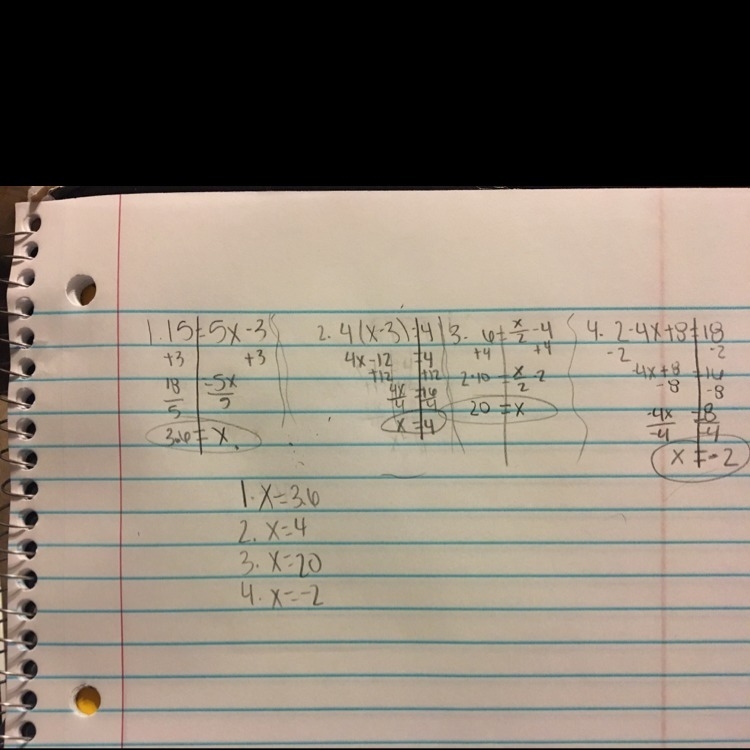 1. 15=5x-3
+3 +3
18/5 = 5x/5
3.6 = x
2. 4(x-3)=4
4x-12=4
+12 +12
4x/4 = 16/4
x=4
3. 6=x/2-4
+4 +4
2·10=x/2·2
20=x
4. 2-4x+8=18
-2 -2
-4x+8=16
-8 -8
-4x/-4 = 8/-4
x=-2
1. x=3.6
2. x=4
3. x=20
4. x=-2